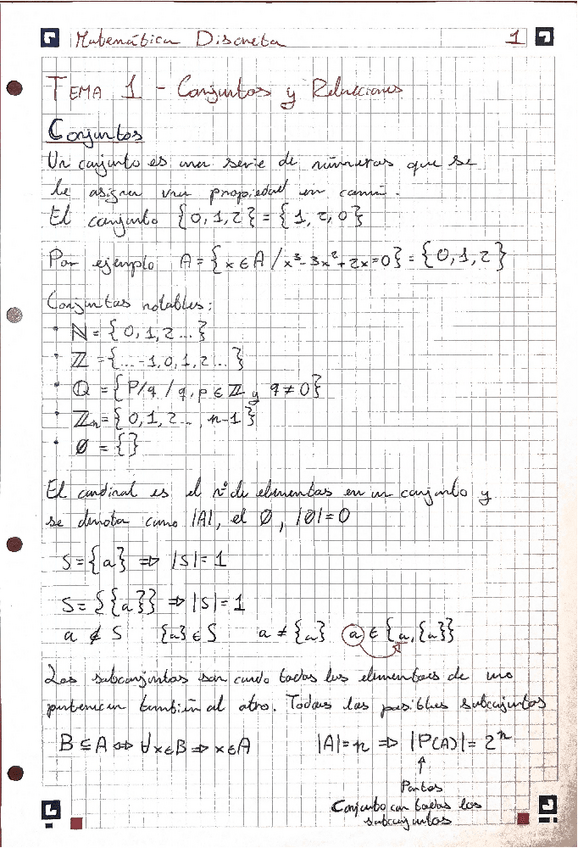 Matemática Discreta 1
TEMA 1 - Conjuntos y Relaciones
Conjuntos
Un conjunto es una serie de números que se
le asigna una propiedad en común.
El conjunto {0,1,2} = {1,2,0}
Por ejemplo A = {x ∈ A / x³-3x²+2x=0} = {0,1,2}
Conjuntos notables:
• ℕ = {0,1,2...}
• ℤ = {...-1,0,1,2...}
• ℚ = {P/q / q,p ∈ ℤ y q ≠ 0}
• ℤn = {0,1,2..., n-1}
• Ø = {}
El cardinal es el nº de elementos en un conjunto y
se denota como |A|, el Ø, |Ø|=0
S = {a} ⇒ |S| = 1
S = {{a}} ⇒ |S| = 1
a ∉ S {a} ∈ S a ≠ {a} a ∈ {a,{a}}
Los subconjuntos son cuando todos los elementos de uno
pertenecen también al otro. Todos los posibles subconjuntos
B ⊆ A ⇔ ∀x∈B ⇒ x∈A |A| = n ⇒ |P(A)| = 2ⁿ
↑
Partes
Conjunto con todos los
subconjuntos